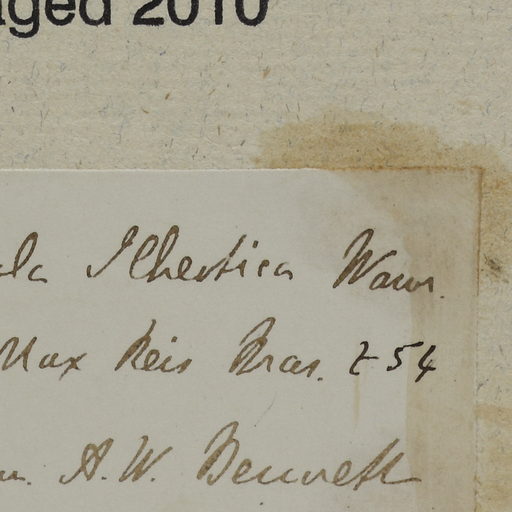 aged 2010
ala Ilhestica Wawr.
Max Reis Bras. t 54
A. W. Bennett